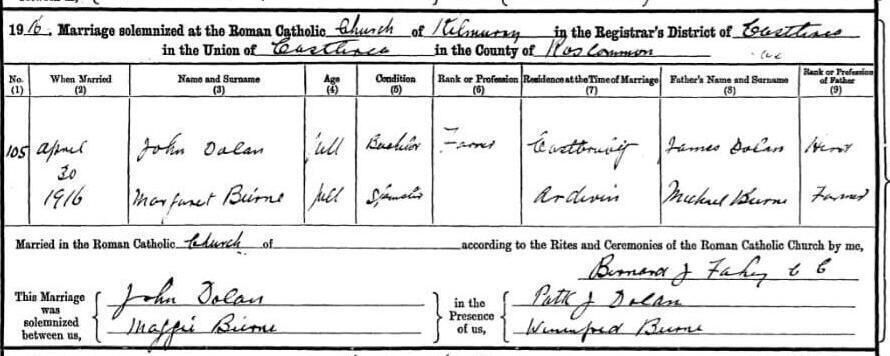 1916. Marriage solemnized at the Roman Catholic Church of Kilmurry in the Registrar's District of Castlerea
in the Union of Castlerea in the County of Roscommon
No. (1) When Married (2) Name and Surname (3) Age (4) Condition (5) Rank or Profession (6) Residence at the Time of Marriage (7) Father's Name and Surname (8) Rank or Profession of Father (9)
105 April 30 1916
John Dolan full Bachelor Farmer James Dolan
Margaret Beirne full Spinster Michael Beirne Farmer
Married in the Roman Catholic Church of according to the Rites and Ceremonies of the Roman Catholic Church by me,
Bernard J Fahy C C
This Marriage was solemnized between us,
John Dolan
Maggie Beirne
in the Presence of us,
Patk J Dolan
Winnifred Beirne